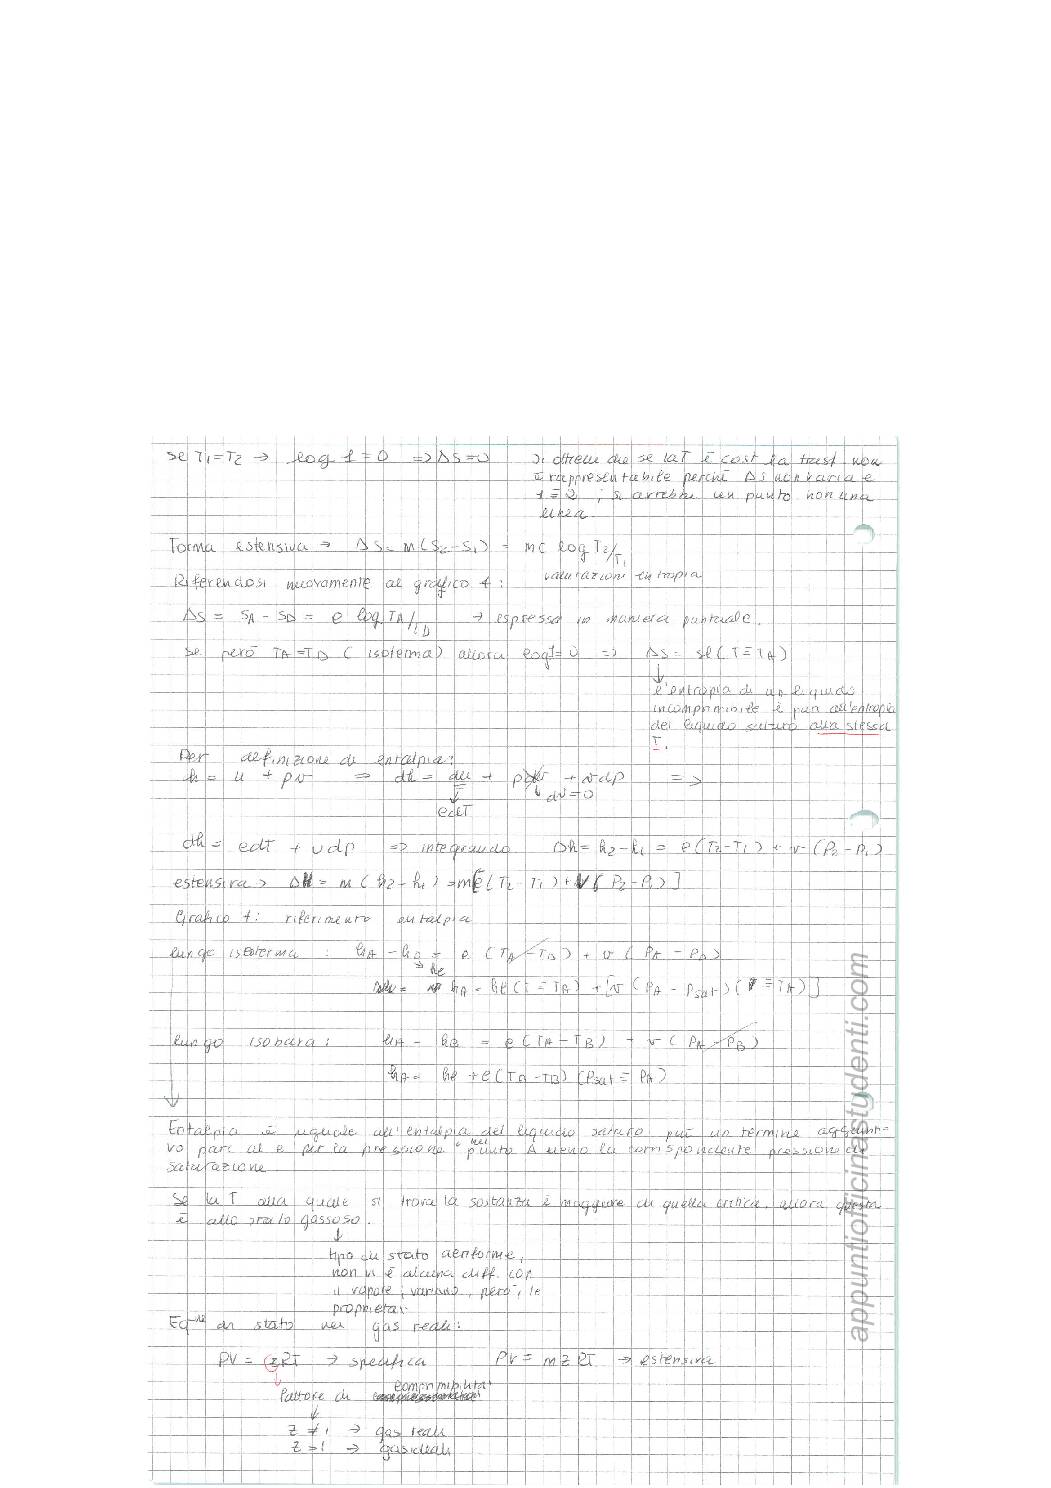 se T1=T2 → log 1=0 => ΔS=0
Si ottiene che se la T è cost la trasf non
è rappresentabile perché ΔS non varia e
1≡2 ; si avrebbe un punto non una
linea.
Forma estensiva → ΔS= m(S2-S1) = mc log T2/T1
valutazioni entropia
Riferendosi nuovamente al grafico 1:
ΔS = SA - SB = c log TA/TB → espressa in maniera puntuale.
Se però TA=TB (isoterma) allora log1=0 => ΔS= sl(T≡TA)
l'entropia di un liquido
incomprimibile è pari all'entropia
del liquido saturo alla stessa
T.
Per definizione di entalpia:
h = u + pv => dh = du + pdv + vdp =>
dv=0
cdT
dh= cdT + vdp => integrando Δh= h2-h1 = c(T2-T1) + v(P2-P1)
estensiva> ΔH = m (h2-h1) =m[c(T2-T1)+v(P2-P1)]
Grafico 1: riferimento entalpia
lungo isoterma : hA - hB = c (TA-TB) + v (PA - PB)
→ hl
hA = hl(T≡TA) + [v (PA - Psat) (T≡TA)]
lungo isobara: hA - hB = c(TA-TB) + v(PA-PB)
hA= hl +c(TA-TB) (Psat≡PA)
Entalpia è uguale all'entalpia del liquido saturo più un termine aggiunti-
vo pari al c per la pressione nel punto A meno la corrispondente pressione di
saturazione
Se la T alla quale si trova la sostanza è maggiore di quella critica, allora questa
è allo stato gassoso.
tipo di stato aeriforme,
non vi è alcuna diff. con
il vapore; variano, però, le
proprietà.
Eq-ne di stato nei gas reali:
PV = zRT → specifica PV = mzRT → estensiva
Fattore di comprimibilità
z ≠ 1 → gas reali
z = 1 → gas ideali
appuntiofficinastudenti.com